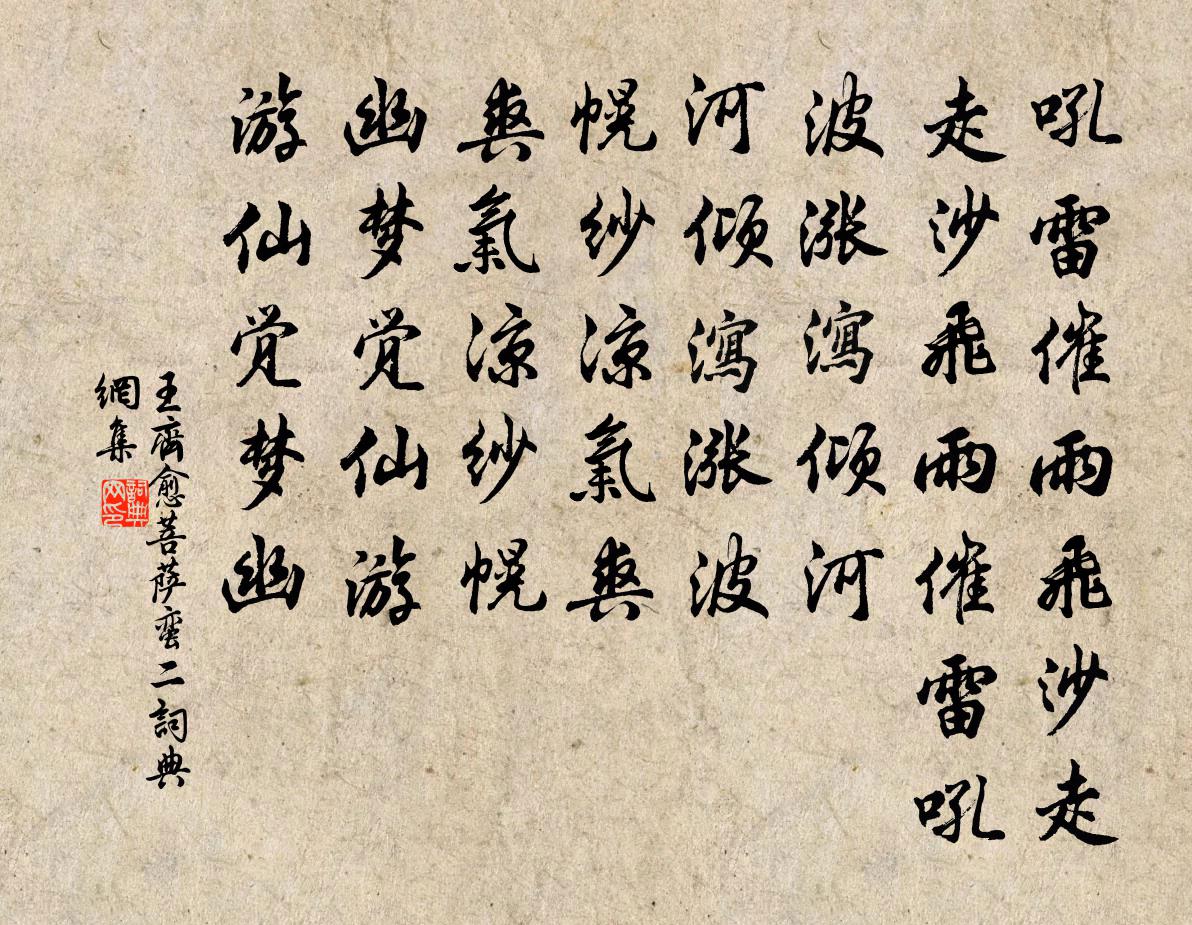 吼雷催雨飛沙走
走沙飛雨催雷吼
波漲瀉傾河
河傾瀉漲波
幌紗涼氣爽
爽氣涼紗幌
幽梦觉仙游
游仙觉梦幽
王齊愈菩萨蛮二詞典
網集
詞典网印